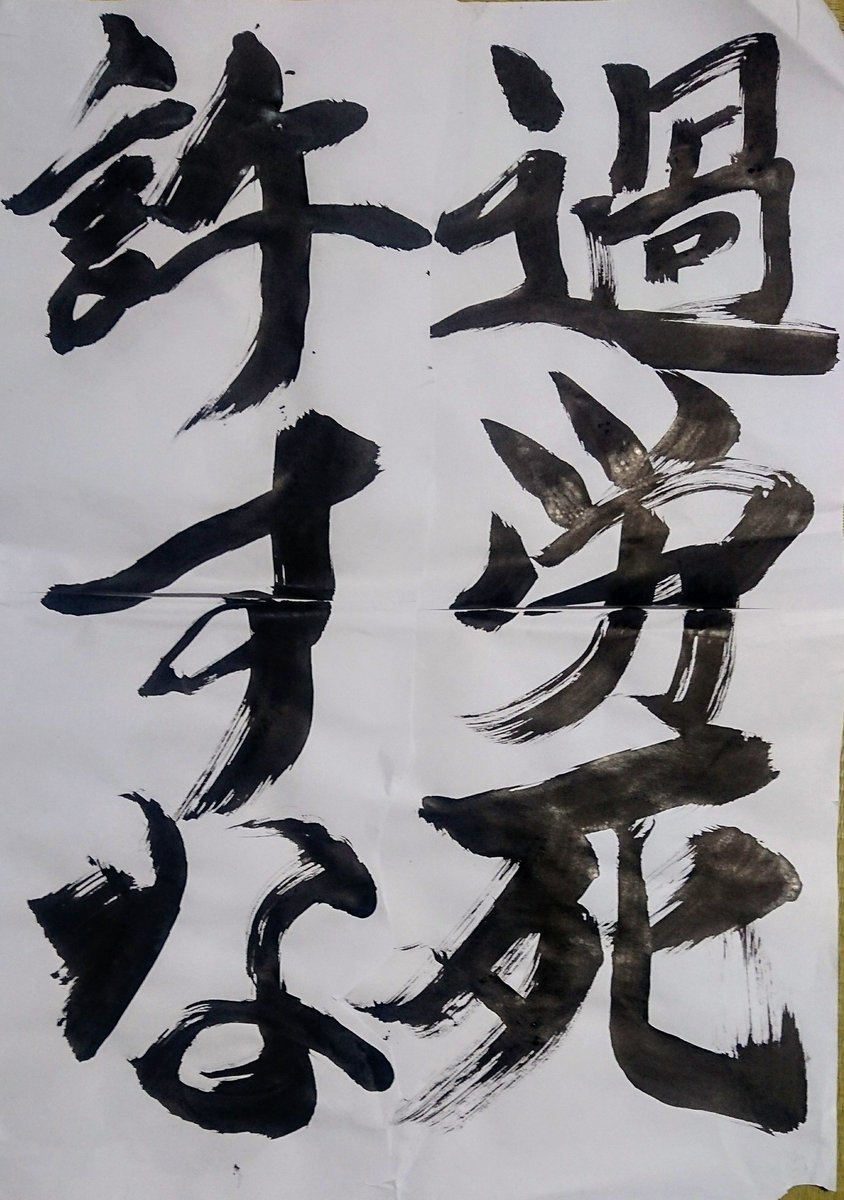 過労死
許すな